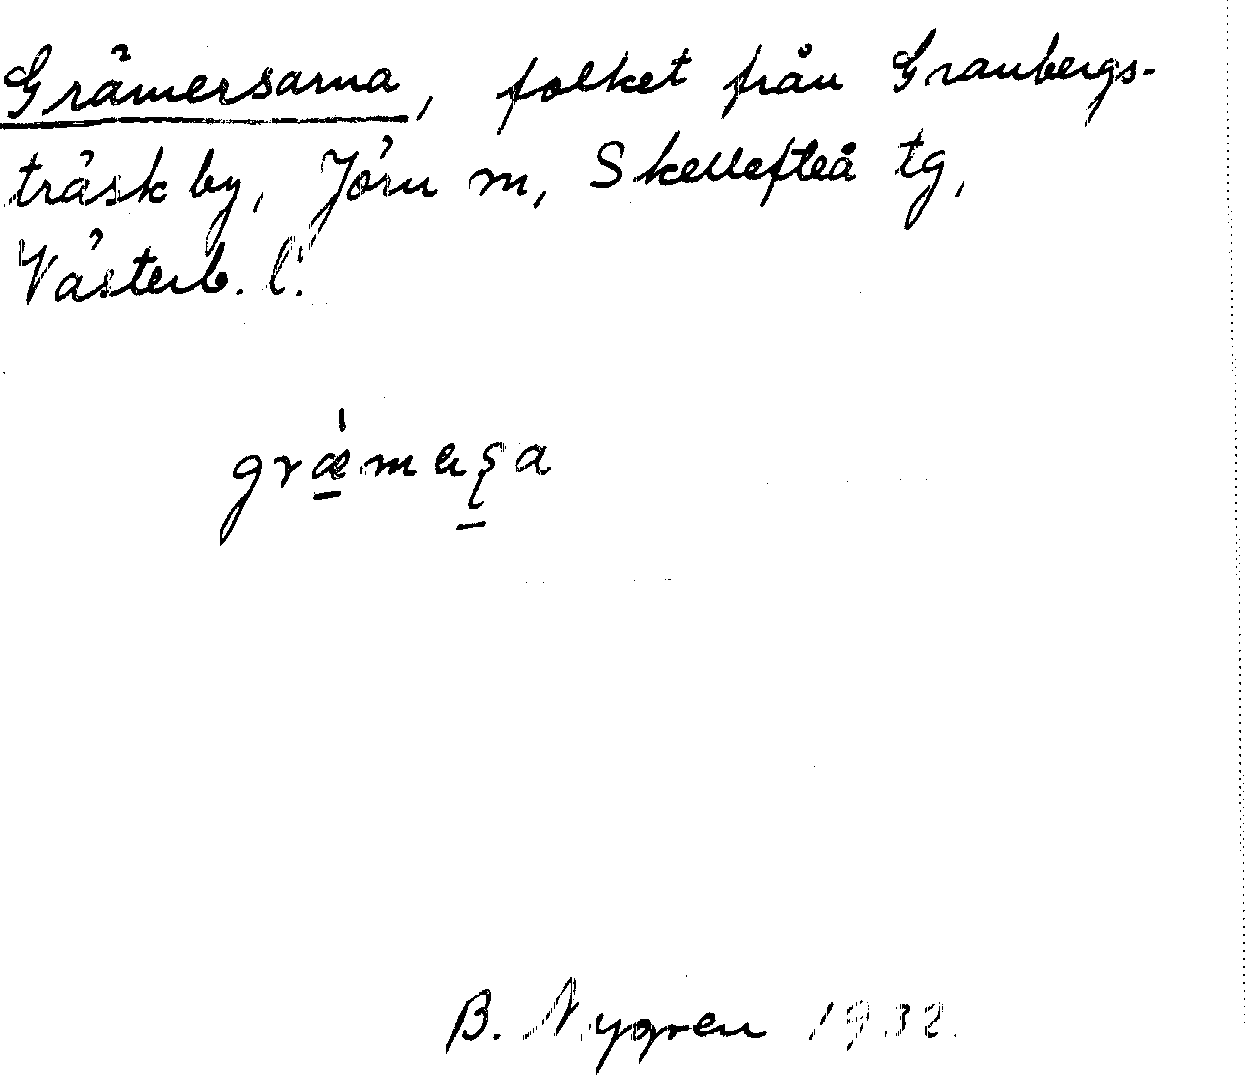 Grämersarna, folket från Granbergs-
träsk by, Jörn sn, Skellefteå tg,
Västerb. l.
B. Nygren 1932.